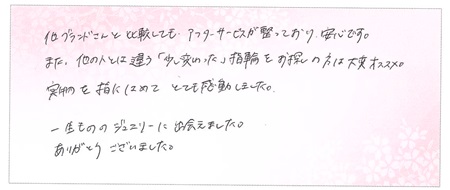 他ブランドさんと比較しても、アフターサービスが整っており、安心です。
また、他の人とは違う「少し変わった」指輪をお探しの方は大変オススメ。
実物を指にはめて とても感動しました。
一生ものの ジュエリーに 出会えました。
ありがとう ございました。